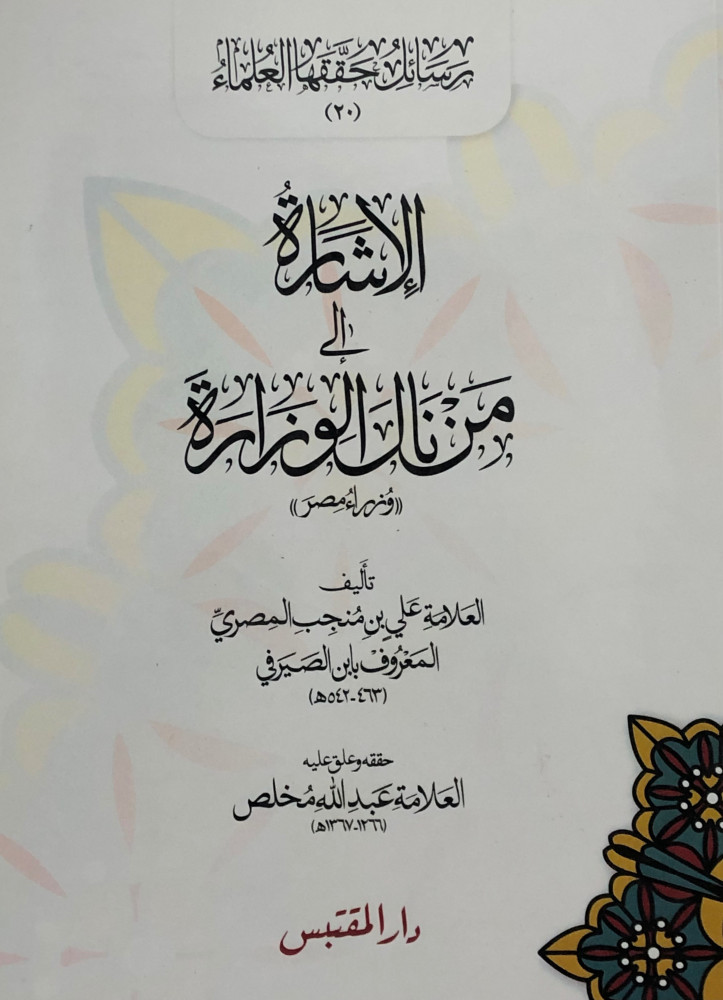 رَسَائِلُ حَقَّقَهَا العُلَمَاءُ
(٢٠)
الإِشَارَةُ
إلى
مَنْ نَالَ الوِزَارَةَ
((وُزراءُ مِصرَ))
تأليف
العَلامَة عَلي بنِ مُنجِب المِصريِّ
المَعْرُوفْ بابن الصَيرَفي
(٤٦٣-٥٤٢هـ)
حققه وعلق عليه
العَلامَة عَبدِ اللهِ مُخلص
(١٢٦٦-١٣٦٧هـ)
دار المقتبس